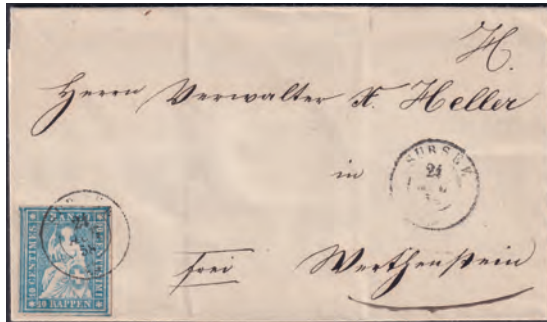 H.
Herrn Verwalter X. Heller
in
SURSEE
21
frei
Werthenstein
10 CENTIMES
20 RAPPEN